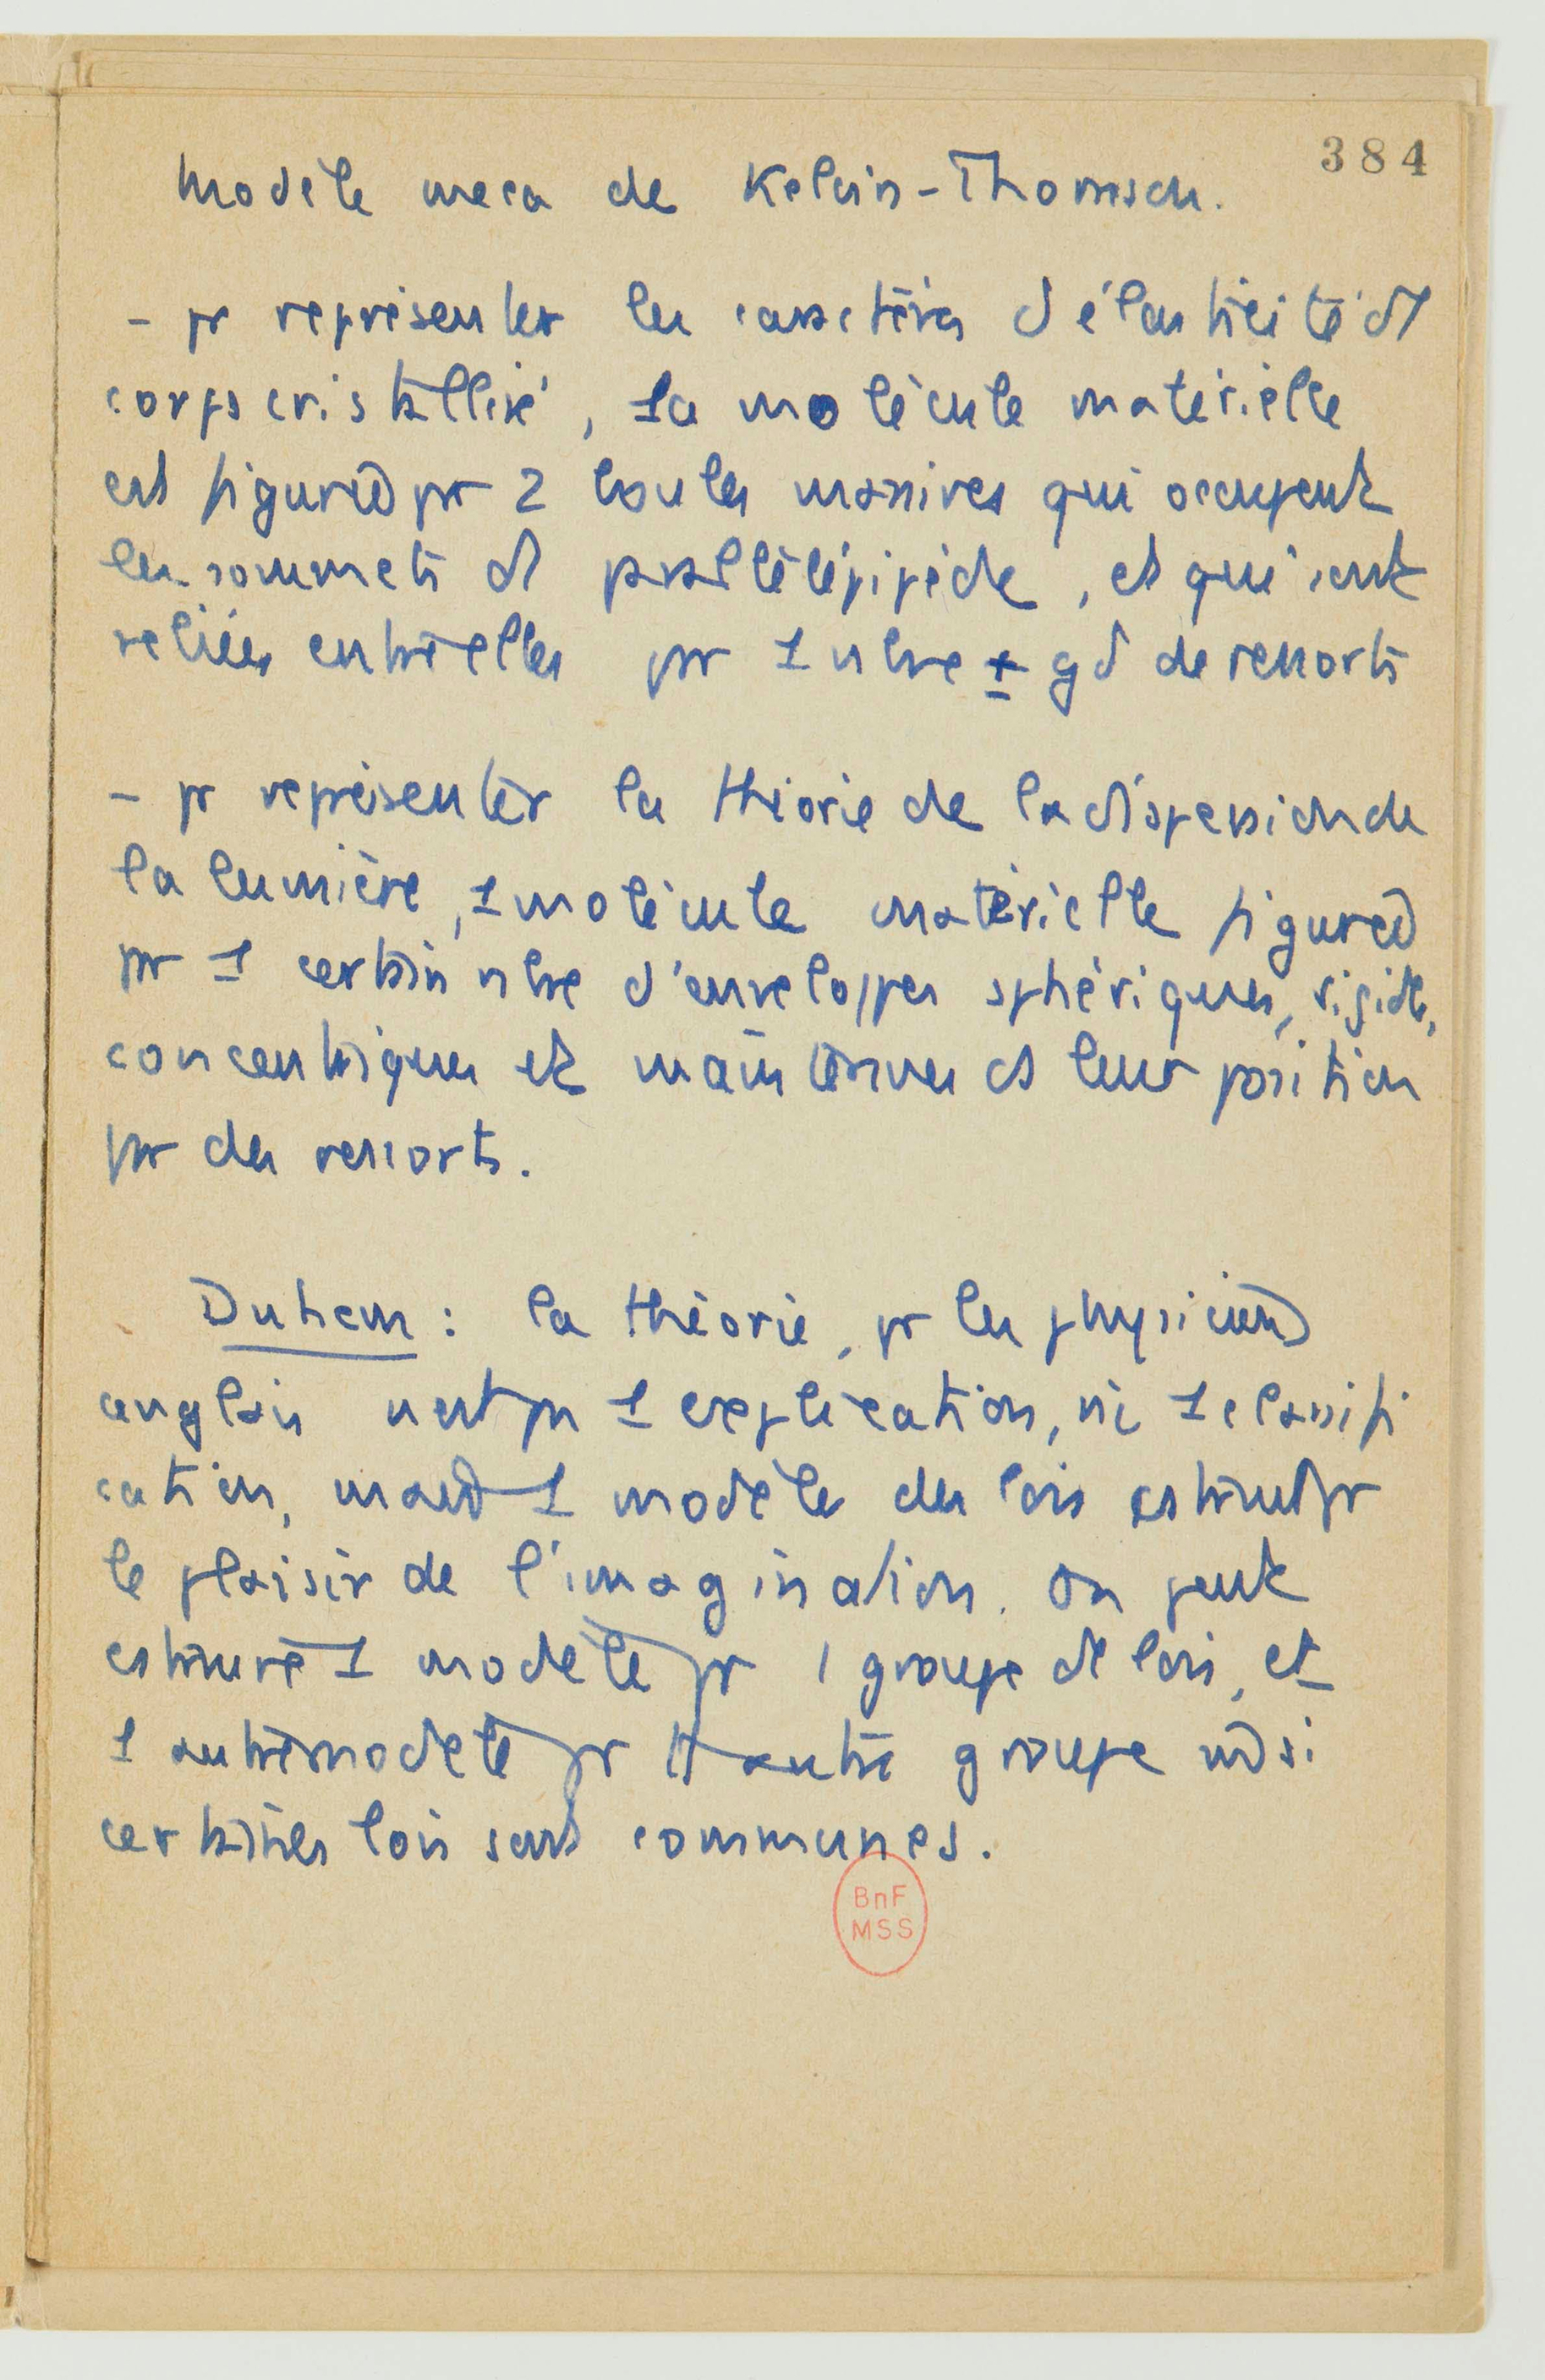 384
Modèle meca de Kelvin-Thomson.
- pr représenter les caractères d'élasticité d'1
corps cristallisé, la molécule matérielle
est figurée pr 2 boules massives qui occupent
les sommets d'1 parallélépipède, et qui sont
reliées entre elles par 1 nbre ± gd de ressorts
- pr représenter la théorie de la dispersion de
la lumière, 1 molécule matérielle figurée
par 1 certain nbre d'enveloppes sphériques, rigides,
concentriques et maintenues ds leur position
par des ressorts.
Duhem : la théorie, pr les physiciens
anglais n'est pas 1 explication, ni 1 classifi
cation, mais 1 modèle des lois construit pr
le plaisir de l'imagination. On peut
construire 1 modèle pr 1 groupe de lois, et
1 autre modèle pr 1 autre groupe même si
certaines lois sont communes.
BnF
MSS